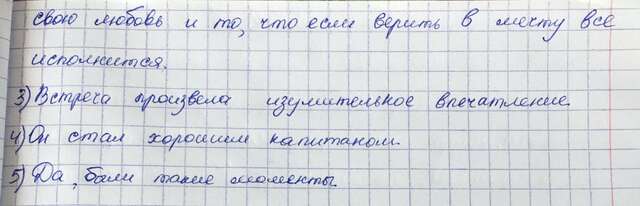 свою любовь и то, что если верить в мечту все
исполнится.
3) Встреча произвела изумительное впечатление.
4) Он стал хорошим капитаном.
5) Да, были такие моменты.